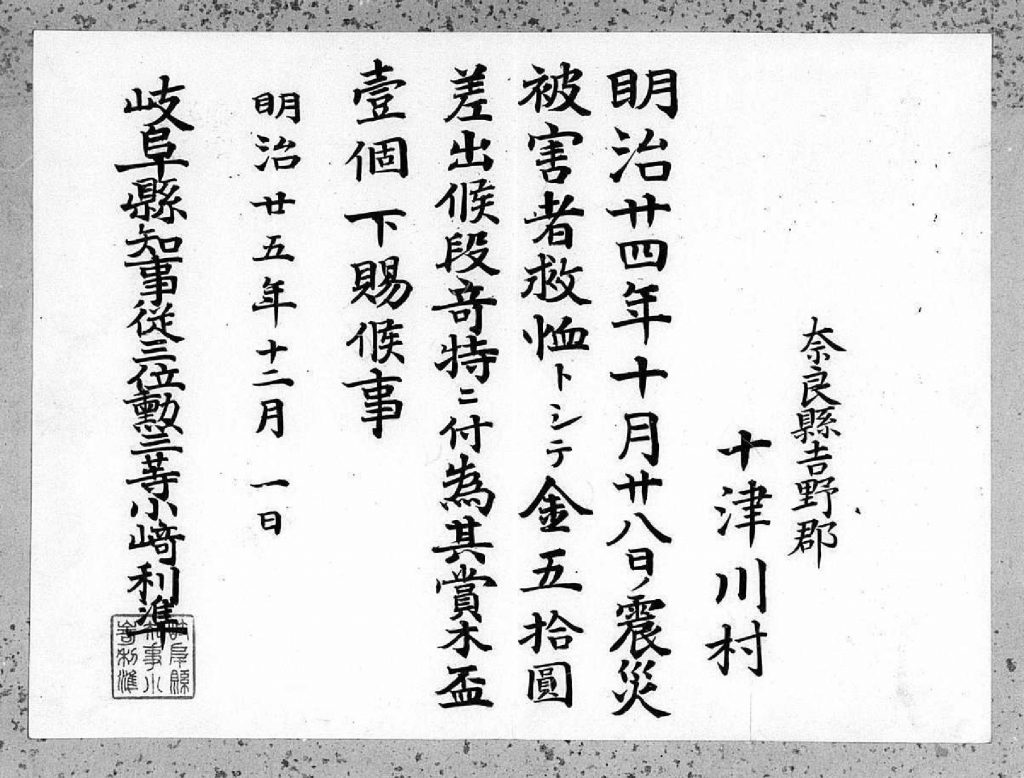 奈良縣吉野郡
十津川村
明治廿四年十月廿八日ノ震災
被害者救恤トシテ金五拾圓
差出候段竒特ニ付為其賞木盃
壹個下賜候事
明治廿五年十二月一日
岐阜縣知事従三位勲三等小﨑利準
岐阜縣
知事小
﨑利準